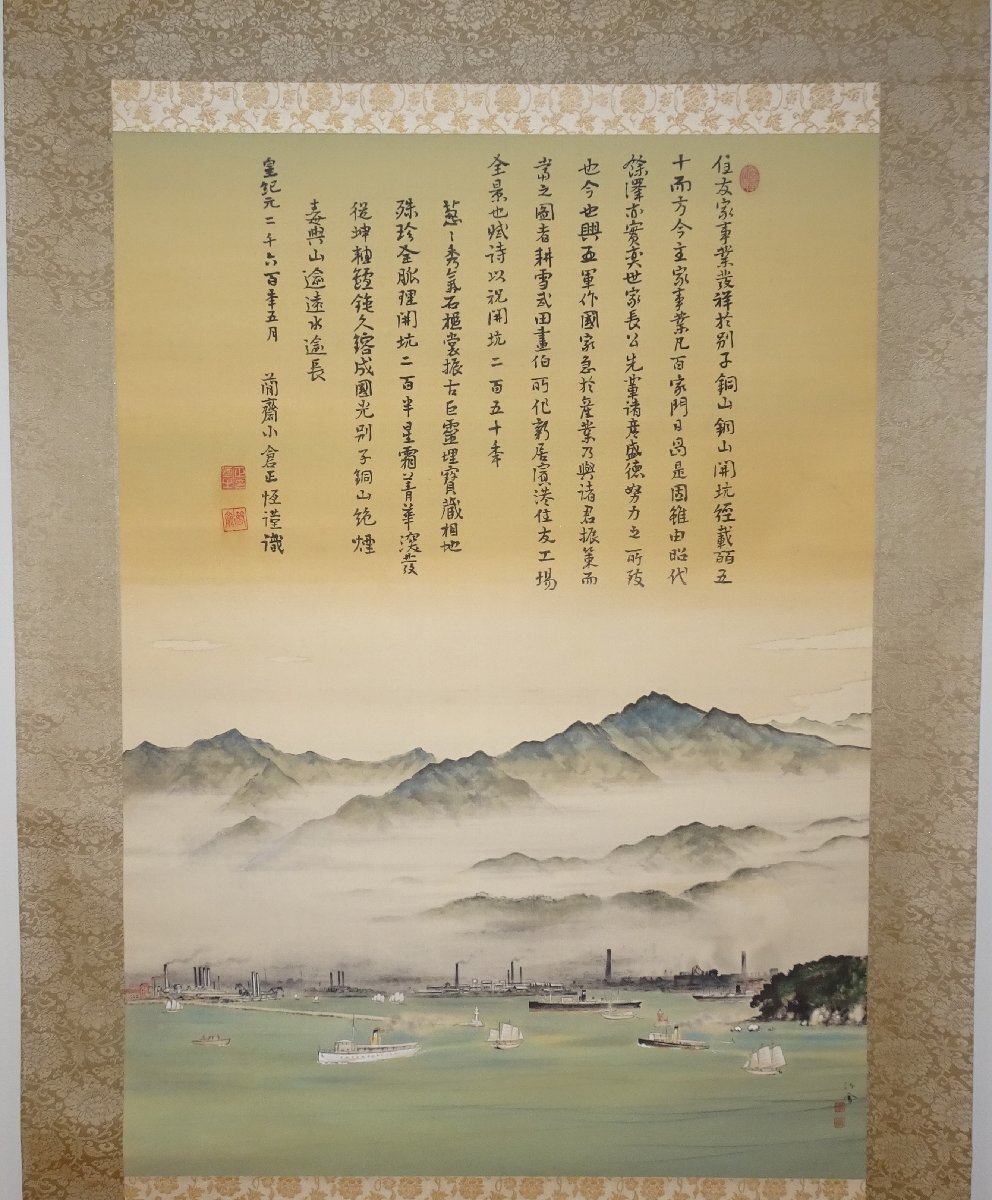 住友家事業發祥於別子銅山銅山開坑經載二百五
十而方今主家事業凡百家門日昌是固雖由昭代
餘澤亦實奕世家長公先輩諸彦盛德努力之所致
也今也興亞軍作國家急於產業乃與諸君振策而
當之圖者耕雪武田畫伯所作新居濱港住友工場
全景也賦詩以祝開坑二百五十年
葱々秀氣石樞裳振古巨靈埋寶藏相地
殊珍全脈理開坑二百半星霜菁華滾發
從坤軸鑪錘久鎔成國光別子銅山銃煙
壽與山逾遠水逾長
皇紀元二千六百年五月
簡齋小倉正恆謹識